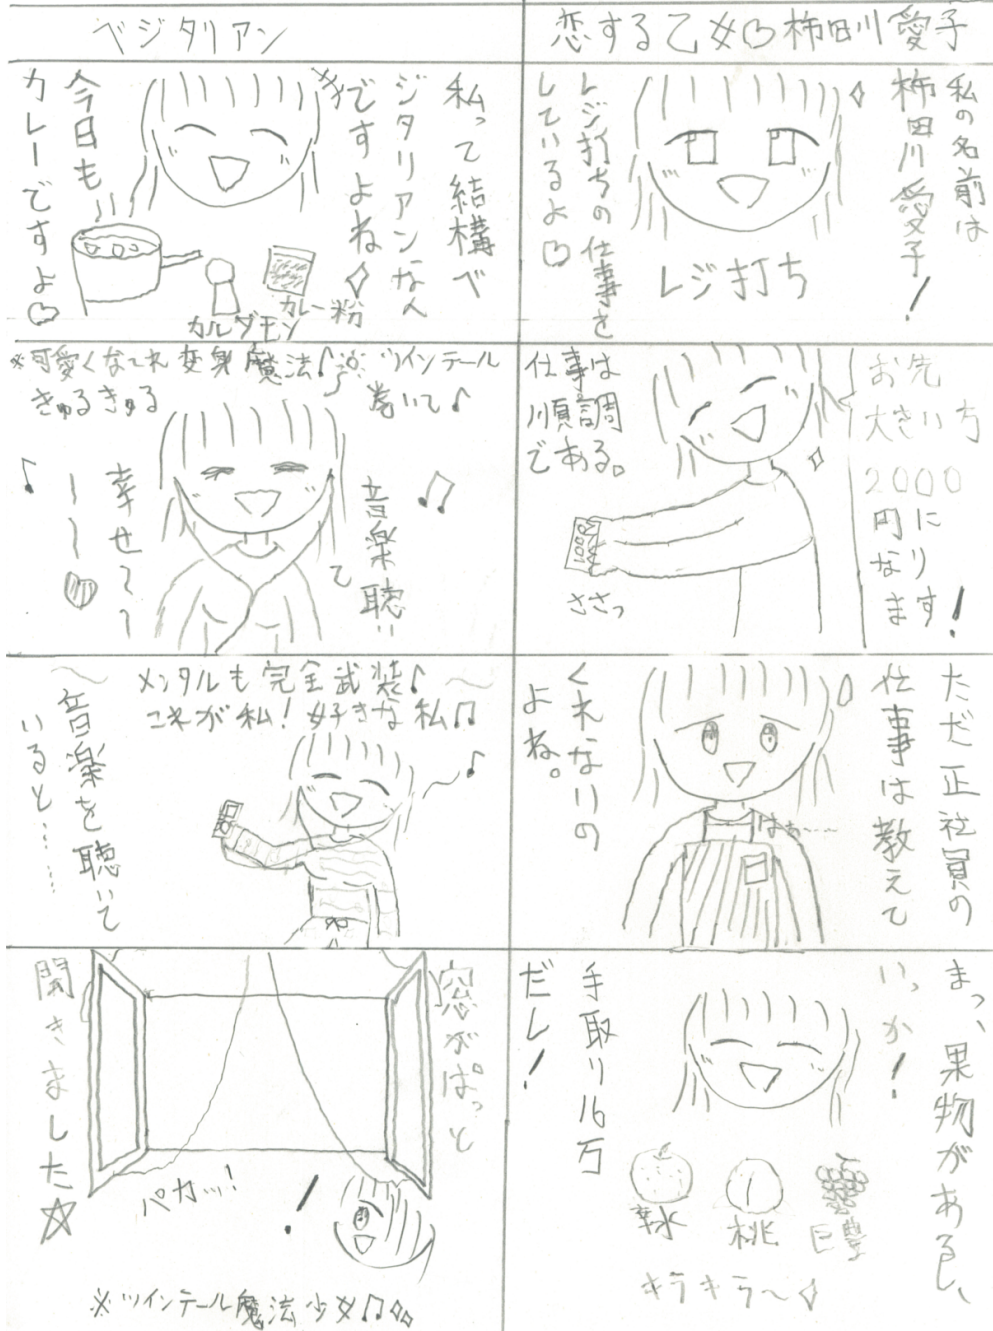 恋する乙女♡柿田川愛子
私の名前は
柿田川愛子！
レジ打ちの仕事を
しているよ♡
レジ打ち
お先
大きい方
2000
円に
なり
ます！
仕事は
順調
である。
1000
ささっ
ただ正社員の
仕事は教えて
くれないの
よね。
はぁ〜〜
まっ、果物があるし、
いっか！
手取り16万
だし！
幸水
桃
巨豊
キラキラ〜✧
ベジタリアン
私って結構ベ
ジタリアンなん
ですよね✧
今日も
カレーですよ♡
カルダモン
カレー粉
※可愛くなーれ変身魔法♪ ツインテール
きゅるきゅる 巻いて♪
音楽聴い
て
幸せ〜〜
〜〜♥
メンタルも完全武装♪
これが私！好きな私♫
音楽を聴いて
いると……
窓がぱっと
開きました☆
パカッ！
！
※ツインテール魔法少女♫✧✧